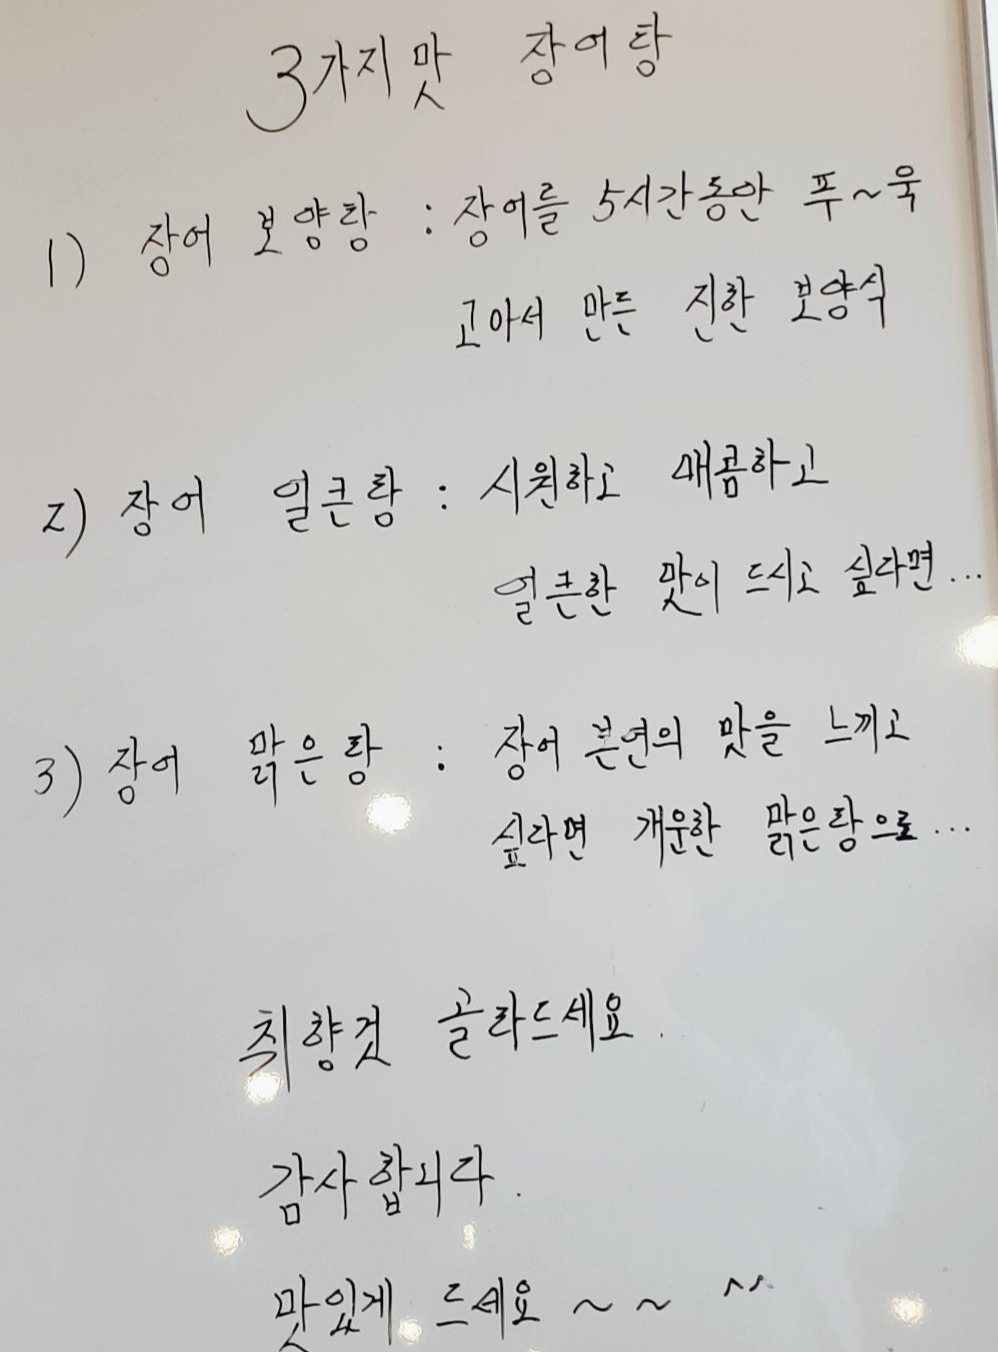 3가지맛 장어탕
1) 장어 보양탕 : 장어를 5시간동안 푸~욱
고아서 만든 진한 보양식
2) 장어 얼큰탕 : 시원하고 매콤하고
얼큰한 맛이 드시고 싶다면...
3) 장어 맑은탕 : 장어 본연의 맛을 느끼고
싶다면 개운한 맑은탕으로...
취향것 골라드세요.
감사합니다.
맛있게 드세요~~ ^^